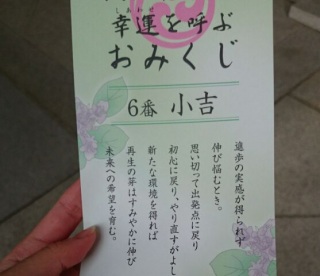 しあわせ
幸運を呼ぶ
おみくじ
6番 小吉
進歩の実感が得られず
伸び悩むとき。
思い切って出発点に戻り
初心に戻り、やり直すがよし
新たな環境を得れば
再生の芽はすみやかに伸び
未来への希望を育む。